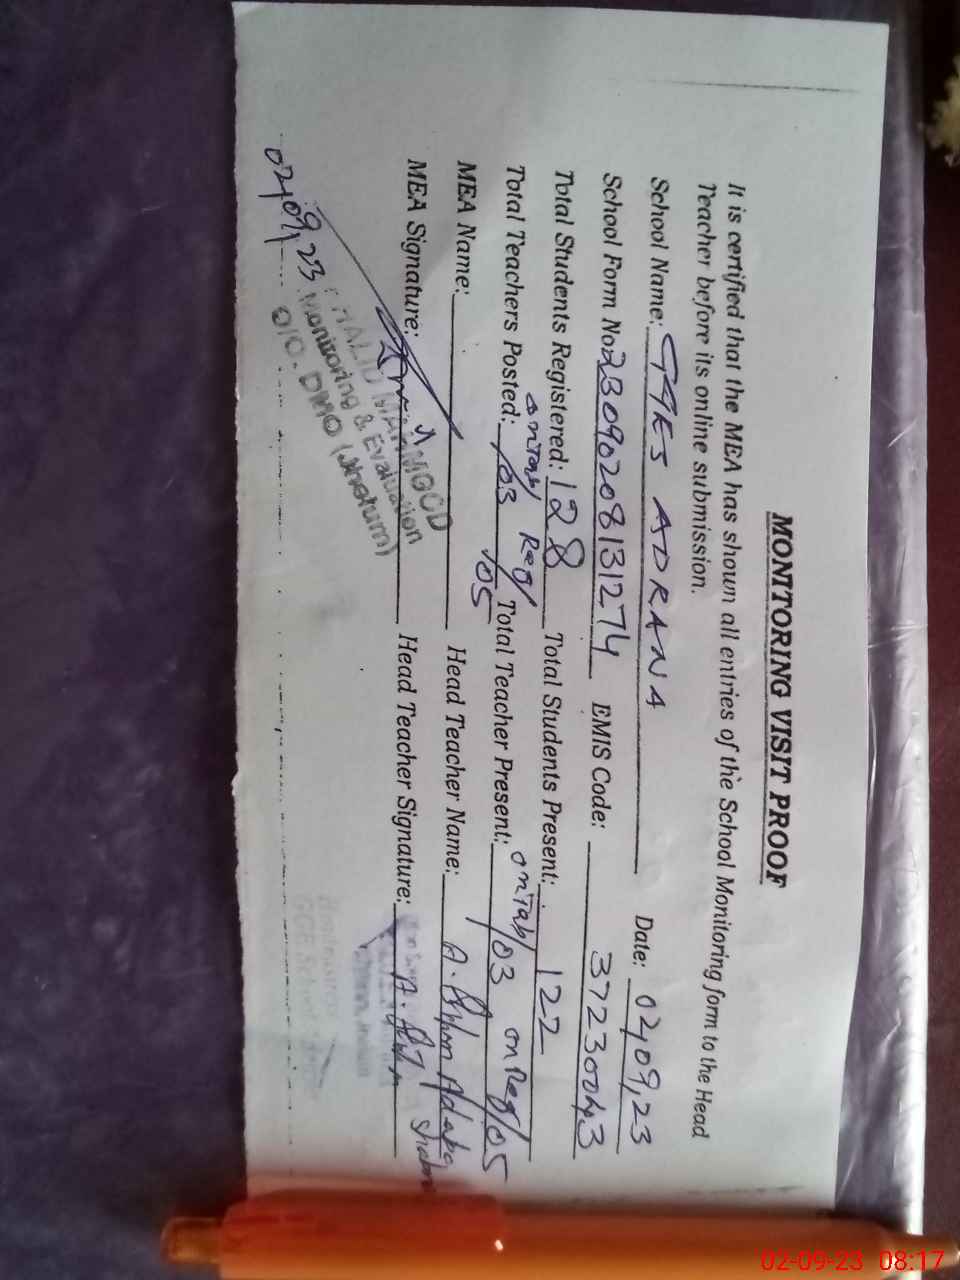 MONITORING VISIT PROOF
It is certified that the MEA has shown all entries of the School Monitoring form to the Head
Teacher before its online submission.
School Name: GGES ADRANA Date: 02/09,23
School Form No: 2309020813127 4 EMIS Code: 37230043
Total Students Registered: 128 Total Students Present: 122
on Tab/ Reg/ on Tab/03 on Reg/05
Total Teachers Posted: /03 /05 Total Teacher Present:
MEA Name: Head Teacher Name: A.
MEA Signature: Head Teacher Signature:
KHALID MAHMOOD
Monitoring & Evaluation
O/O. DMO (Jhelum)
02/09,23
02-09-23 08:17